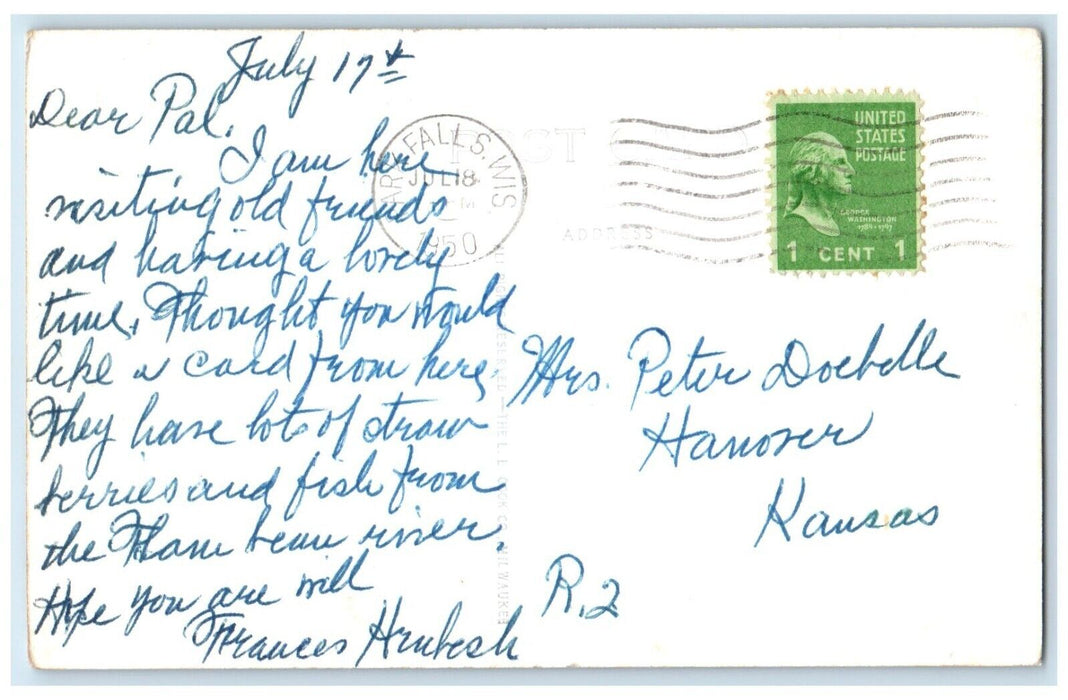 July 17th
Dear Pal,
I am here
visiting old friends
and having a lovely
time. Thought you would
like a card from here.
They have lots of straw
berries and fish from
the Flam beau river.
Hope you are well
Frances Hrubesh
PARK FALLS. WIS.
JUL 18
M
1950
POST
ADDRESS
UNITED
STATES
POSTAGE
GEORGE
WASHINGTON
1789-1797
1 CENT 1
Mrs. Peter Doebelle
Hanover
Kansas
R. 2
RESERVED—THE L.L. COOK CO. MILWAUKEE